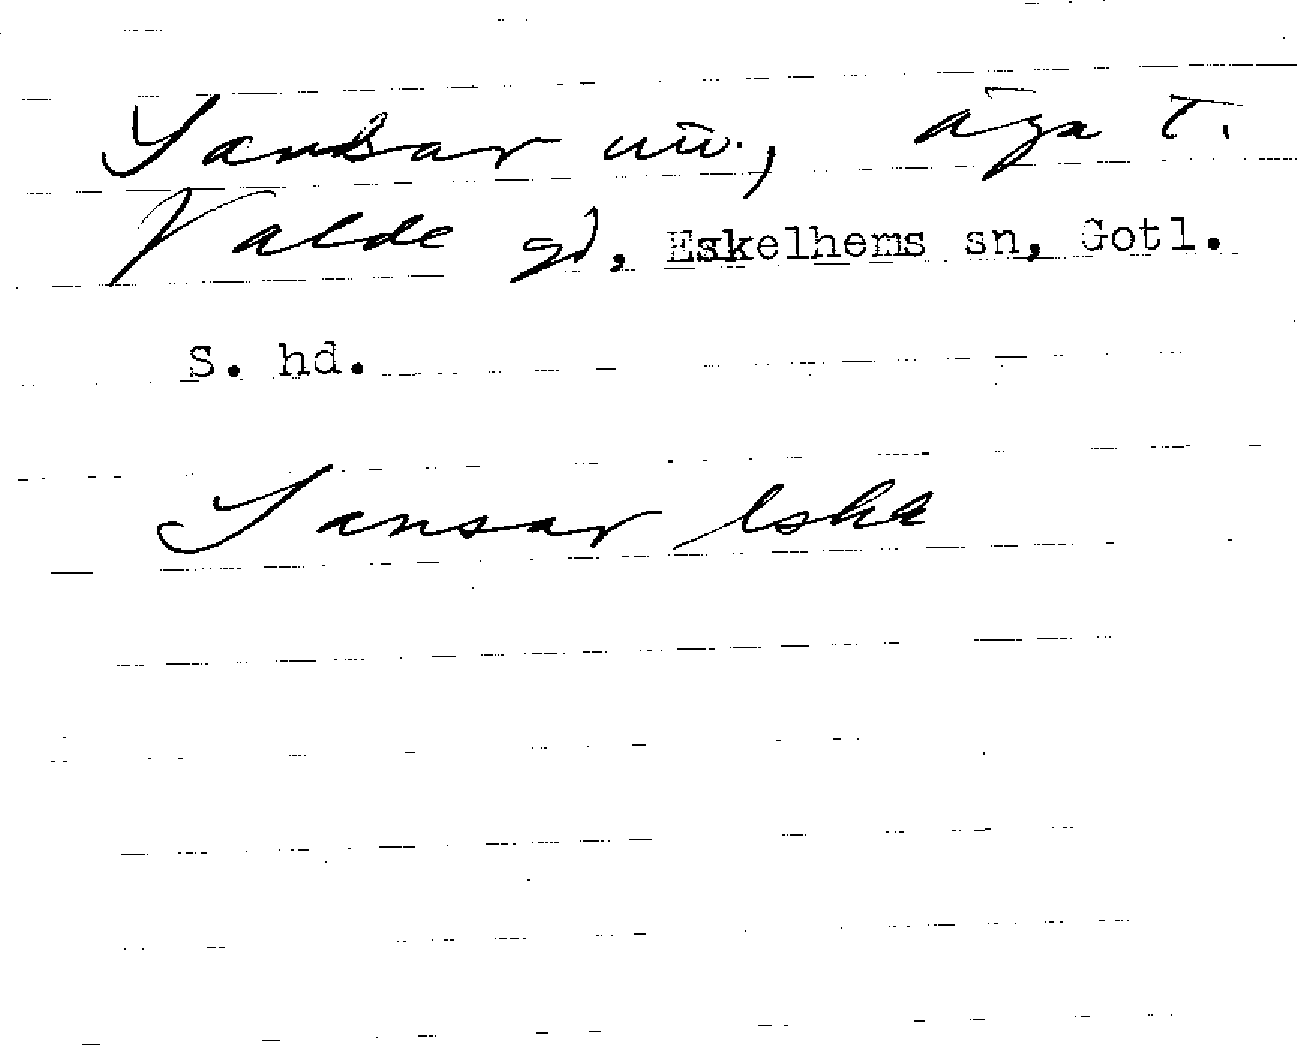 Sansar äga t.
Valde gd, Eskelhems sn, Gotl.
S. hd.
Sansar